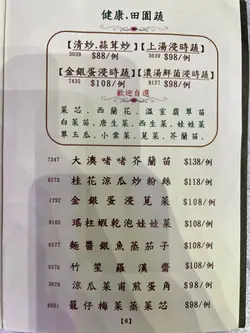 健康.田園蔬
【清炒.蒜茸炒】【上湯浸時蔬】
3039 $88/例 3039 $98/例
【金銀蛋浸時蔬】【濃湯鮮菌浸時蔬】
7435 $108/例 8127 $98/例
歡迎自選
菜芯．西蘭花．溫室翡翠苗
白菜苗．唐生菜．西生菜．娃娃菜
翠玉瓜．小棠菜．莧菜．芥蘭苗．
7347 大澳啫啫芥蘭苗 $138/例
6573 桂花涼瓜炒粉絲 $118/例
1292 金銀蛋浸莧菜 $108/例
8165 瑤柱蝦乾泡娃娃菜 $108/例
6577 麵醬銀魚蒸茄子 $108/例
6576 竹笙羅漢齋 $108/例
3029 涼瓜菜甫煎蛋角 $98/例
6661 籠仔梅菜蒸菜芯 $98/例
【6】